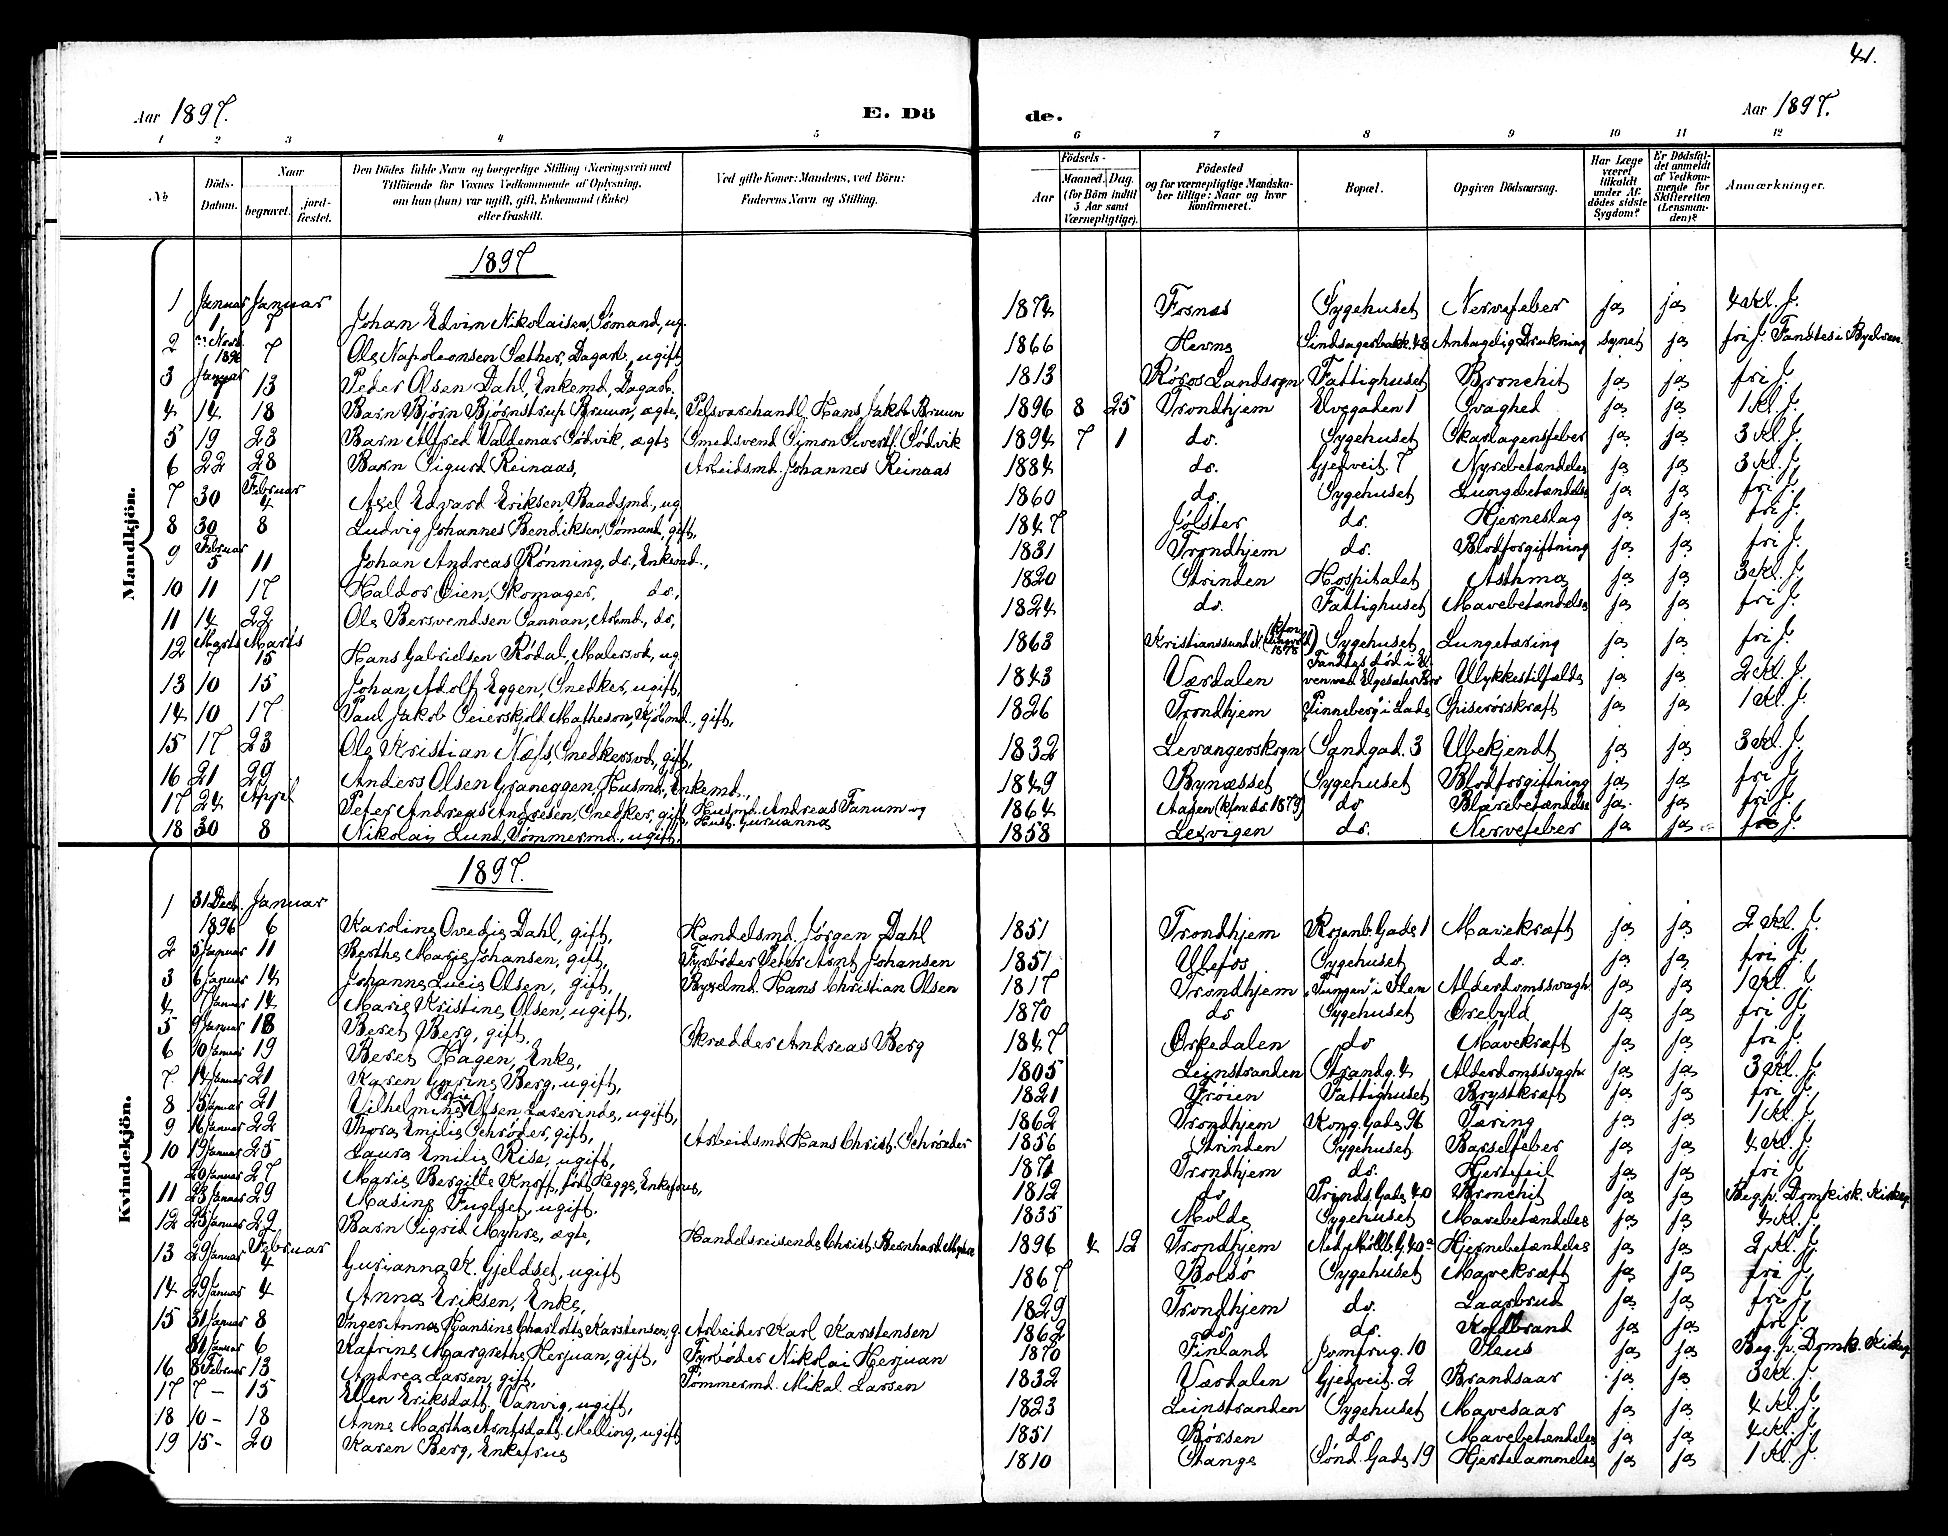 41.
Aar 1897. E. Dö de. Aar 1897.
1 2 3 4 5 6 7 8 9 10 11 12
No. Döds-Datum. Naar begravet. jordfæstet. Den Dödes fulde Navn og borgerlige Stilling (Næringsvei) med Tilföiende for Voxnes Vedkommende af Oplysning, om han (hun) var ugift, gift, Enkemand (Enke) eller fraskilt. Ved gifte Koner: Mandens, ved Börn: Faderens Navn og Stilling. Födsels- Aar Maaned. Dag. (for Börn indtil 5 Aar samt Værnepligtige). Födested og for værnepligtige Mandskaber tillige: Naar og hvor konfirmeret. Bopæl. Opgiven Dödsaarsag. Har Læge været tilkaldt under Afdödes sidste Sygdom? Er Dödsfaldet anmeldt af Vedkommende for Skifteretten (Lensmanden)? Anmærkninger.
Mandkjön.
1897
1 Januar 1 Januar 7 Johan Edvin Nikolaisen, Sømand, ug. 1874 Fosnæs Sygehuset Nervefeber ja ja 4 Kl. J.
2 Novb. 1896 7 Ole Napoleonsen Sæther, Dagarb., ugift 1866 Hevne Lindsagerbakk. 48 Antagelig Drukning Synet ja fri J. Fandtes i Byelven.
3 Januar 7 13 Peder Olsen Dahl, Enkemd., Dagarb. 1813 Røros Landsogn Fattighuset Bronchit ja ja fri J.
4 14 18 Barn Bjørn Bjørnstrup Bruun, ægte, Pelsvarehandl. Hans Jakob Bruun 1896 8 25 Trondhjem Elvegaden 1 Svaghed ja ja 1 Kl. J.
5 19 23 Barn Alfred Valdemar Sødvik, ægte Smedsvend Symon Sivertf. Sødvik 1894 7 1 do. Sygehuset Skarlagensfeber ja ja 3 Kl. J.
6 22 28 Barn Sigurd Reinaas, Arbeidsmd. Johannes Reinaas 1884 do. Gjetveit. 7 Nyrebetændelse ja ja 3 Kl. J.
7 30 Februar 4 Axel Edvard Eriksen, Baadsmd., ug. 1860 do. Sygehuset Lungebetændelse ja ja fri J.
8 30 8 Ludvig Johannes Bendiksen, Sømand, gift, 1847 Jølster do. Hjerneslag ja ja fri J.
9 Februar 5 11 Johan Andreas Rønning, do., Enkemd., 1831 Trondhjem do. Blodforgiftning ja ja fri J.
10 11 17 Haldor Oien, Skomager, do, 1820 Strinden Hospitalet Asthma ja ja 3 Kl. J.
11 14 22 Ole Bersvendsen Sannan, Arbmd., do, 1824 do. Fattighuset Mavebetændelse ja ja fri J.
12 Marts 7 Marts 15 Hans Gabrielsen Rødal, Malersvd., ug. 1863 Kristianssund N. Sygehuset Lungetæring ja ja fri J.
13 10 15 Johan Adolf Eggen, Snedker, ugift, 1843 Værdalen Fandtes død i Elven ved Elgesæter Bro Ulykkestilfælde ja ja 2 Kl. J.
14 10 17 Paul Jakob Seierskjold Matheson, Kjøbmd., gift, 1826 Trondhjem "Pinneberg" i Lade Spiserørskræft ja ja 1 Kl. J.
15 17 23 Ole Kristian Næss, Snedkersvd., gift, 1832 Levangerskogn Sandgad. 3 Ubekjendt ja ja 3 Kl. J.
16 21 29 Anders Olsen Graneggen, Husmd., Enkemd., 1849 Bynæsset Sygehuset Blodforgiftning ja ja fri J.
17 24 April Peter Andreas Andresen, Snedker, gift, Husmd. Andreas Fanum og Hust. Gurianna 1864 Aasen (kfm do. 1879) do Blærebetændelse ja ja fri J.
18 30 8 Nikolai Lund, Tømmermd., ugift, 1858 Lexvigen do. Nervefeber ja ja fri J.
Kvindekjön.
1897.
1 31 Decb. 1896 Januar 6 Karoline Ovedie Dahl, gift, Handelsmd. Jørgen Dahl 1851 Trondhjem Rosenb. Gade 1 Mavekræft ja ja 2 Kl. J.
2 5 Januar 11 Berthe Marie Johansen, gift, Fyrbøder Peter Arnt Johansen 1851 Ulefos Sygehuset do. ja ja fri J.
3 6 Januar 14 Johanne Lucie Olsen, gift, Byselmd. Hans Christian Olsen 1817 Trondhjem "Tungen" i Ilen Alderdomssvagh. ja ja 1 Kl. J.
4 7 Januar 14 Marie Kristine Olsen, ugift, 1870 do Sygehuset Ørebyld ja ja fri J.
5 9 Januar 18 Beret Berg, gift, Skrædder Andreas Berg 1847 Orkedalen do Mavekræft ja ja fri J.
6 10 Januar 19 Beret Hagen, Enke, 1805 Leinstranden Strandg. 4 Alderdomssvagh. ja ja 3 Kl. J.
7. 14 Januar 21 Karen Gurine Berg, ugift, 1821 Frøien Fattighuset Brystkræft ja ja fri J.
8 15 Januar 21 Vilhelmine Olsen, Lærerinde, ugift, 1862 Trondhjem Kong. Gade 96 Tæring ja ja 1 Kl. J.
9 16 Januar 22 Thora Emilie Schrøder, gift, Arbeidsmd. Hans Christ. Schrøeder 1856 Strinden Sygehuset Barselfeber ja ja 4 Kl. J.
10 19 Januar 25 Laura Emilie Rise, ugift, 1871 Trondhjem do. Hjertefeil ja ja fri J.
20 Januar 27 Marie Bergitte Knoff, født Hegge, Enkefrue, 1812 do Prinds. Gade 40 Bronchit ja ja Beg. p. Domkirk. Kirkeg.
11 23 Januar 29 Masine Fuglset, ugift. 1835 Molde Sygehuset Mavebetændelse ja ja 4 Kl. J.
12 25 Januar 29 Barn Sigrid Myhre, ægte, Handelsreisende Christ. Bernhard Myhre 1896 4 12 Trondhjem Hjernebetændelse ja ja 2 Kl. J.
13 29 Januar Februar 4 Gurianna K. Gjeldset, ugift 1867 Bolsø Sygehuset Mavekræft ja ja fri J.
14 29 Januar 4 Anna Eriksen, Enke, 1829 Trondhjem do. Laarbrud ja ja fri J.
15 31 Januar 8 Inger Anna Hansine Charlotte Karstensen, g. Arbeider Karl Karstensen 1862 do. do. Koldbrand ja ja fri J.
31 Januar 6 Katrine Margrethe Herjuan, gift, Fyrbøder Nikolai Herjuan 1870 Finland Jomfrug. 10 Ileus ja ja Beg. p. Domk. Kirkeg.
16 8 Februar 13 Andrea Larsen, gift, Tømmermd. Mikal Larsen 1832 Værdalen Gjetveit. 2 Brandsaar ja ja 3 Kl. J.
17 7 - 15 Ellen Eriksdatt. Tanvig, ugift, 1823 Leinstranden Sygehuset Mavesaar ja ja 4 Kl. J.
18 10 - 18 Anne Martha Arntsdatt. Melling, ugift 1851 Børsen do Mavebetændelse ja ja 4 Kl. J.
19 15 - 20 Karen Berg, Enkefrue 1810 Stange Sønd. Gade 19 Hjertelammelse ja ja 1 Kl. J.